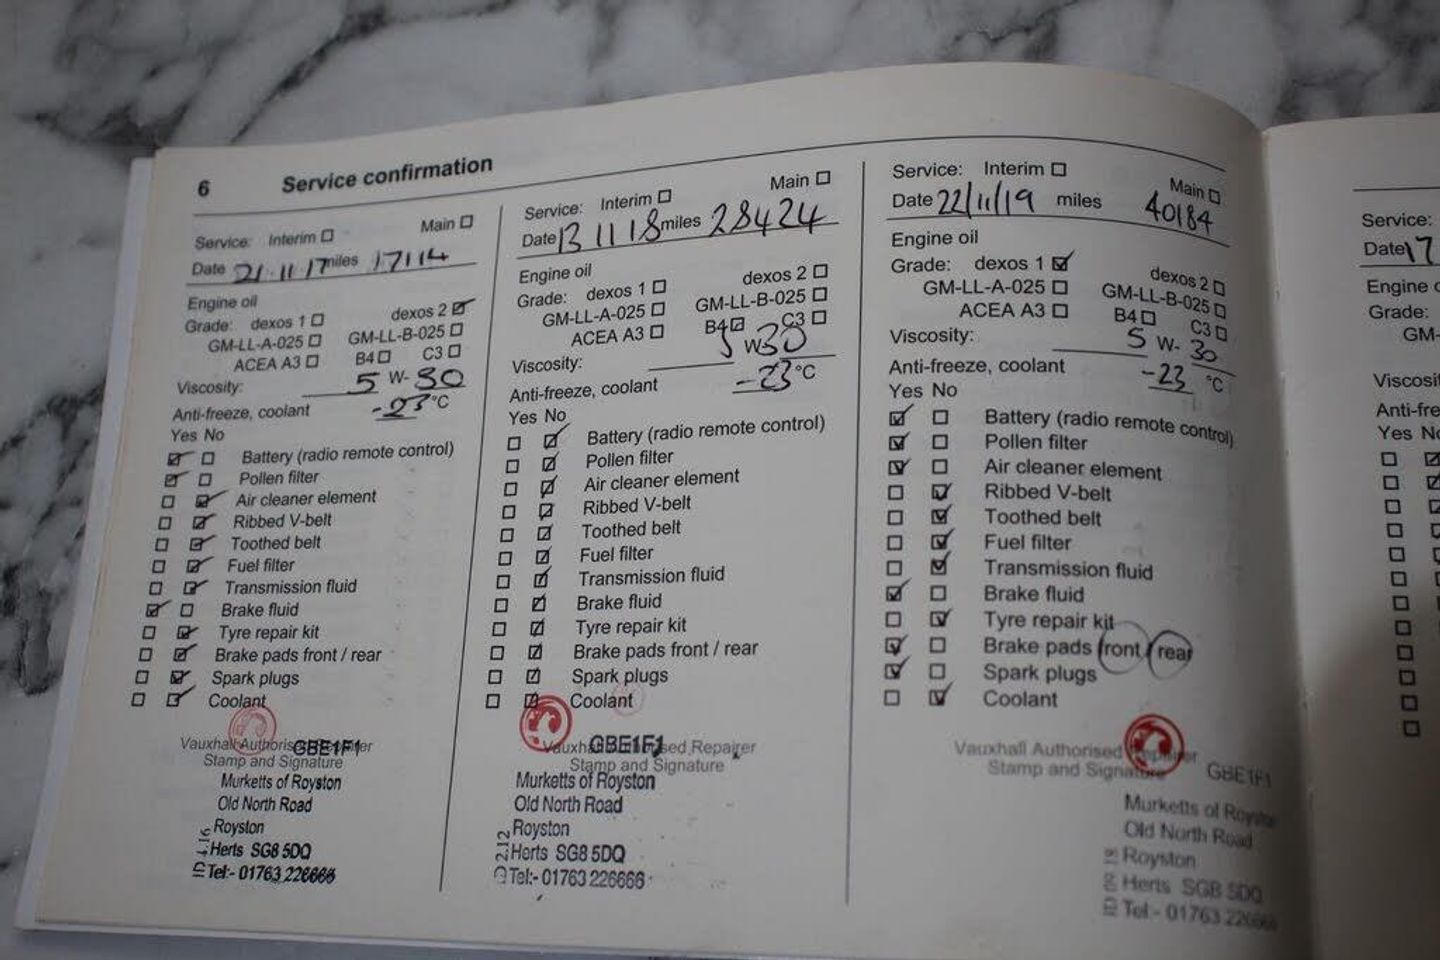 6 Service confirmation
Service: Interim ☐ Main ☐
Date 21·11·17 miles 17114
Engine oil
Grade: dexos 1 ☐ dexos 2 ☑
GM-LL-A-025 ☐ GM-LL-B-025 ☐
ACEA A3 ☐ B4 ☐ C3 ☐
Viscosity: 5 W- 30
Anti-freeze, coolant -23 °C
Yes No
☑ ☐ Battery (radio remote control)
☑ ☐ Pollen filter
☐ ☑ Air cleaner element
☐ ☑ Ribbed V-belt
☐ ☑ Toothed belt
☐ ☑ Fuel filter
☐ ☑ Transmission fluid
☑ ☐ Brake fluid
☐ ☑ Tyre repair kit
☐ ☑ Brake pads front / rear
☐ ☑ Spark plugs
☐ ☑ Coolant
Vauxhall Authorised Repairer GBE1F1
Stamp and Signature
Murketts of Royston
Old North Road
Royston
Herts SG8 5DQ
Tel:- 01763 226666
Service: Interim ☐ Main ☐
Date 13 11 18 miles 28424
Engine oil
Grade: dexos 1 ☐ dexos 2 ☐
GM-LL-A-025 ☐ GM-LL-B-025 ☐
ACEA A3 ☐ B4 ☑ C3 ☐
Viscosity: 5 W 30
Anti-freeze, coolant -23 °C
Yes No
☐ ☑ Battery (radio remote control)
☐ ☑ Pollen filter
☐ ☑ Air cleaner element
☐ ☑ Ribbed V-belt
☐ ☑ Toothed belt
☐ ☑ Fuel filter
☐ ☑ Transmission fluid
☐ ☑ Brake fluid
☐ ☑ Tyre repair kit
☐ ☑ Brake pads front / rear
☐ ☑ Spark plugs
☐ ☑ Coolant
Vauxhall Authorised Repairer GBE1F1
Stamp and Signature
Murketts of Royston
Old North Road
Royston
Herts SG8 5DQ
Tel:- 01763 226666
Service: Interim ☐ Main ☐
Date 22/11/19 miles 40184
Engine oil
Grade: dexos 1 ☑ dexos 2 ☐
GM-LL-A-025 ☐ GM-LL-B-025 ☐
ACEA A3 ☐ B4 ☐ C3 ☐
Viscosity: 5 W- 30
Anti-freeze, coolant -23 °C
Yes No
☑ ☐ Battery (radio remote control)
☑ ☐ Pollen filter
☑ ☐ Air cleaner element
☐ ☑ Ribbed V-belt
☐ ☑ Toothed belt
☐ ☑ Fuel filter
☐ ☑ Transmission fluid
☑ ☐ Brake fluid
☐ ☑ Tyre repair kit
☑ ☐ Brake pads front / rear
☑ ☐ Spark plugs
☐ ☑ Coolant
Vauxhall Authorised Repairer GBE1F1
Stamp and Signature
Murketts of Royston
Old North Road
Royston
Herts SG8 5DQ
Tel:- 01763 226666
Service:
Date 17
Engine
Grade:
GM-
Anti-fre
Yes